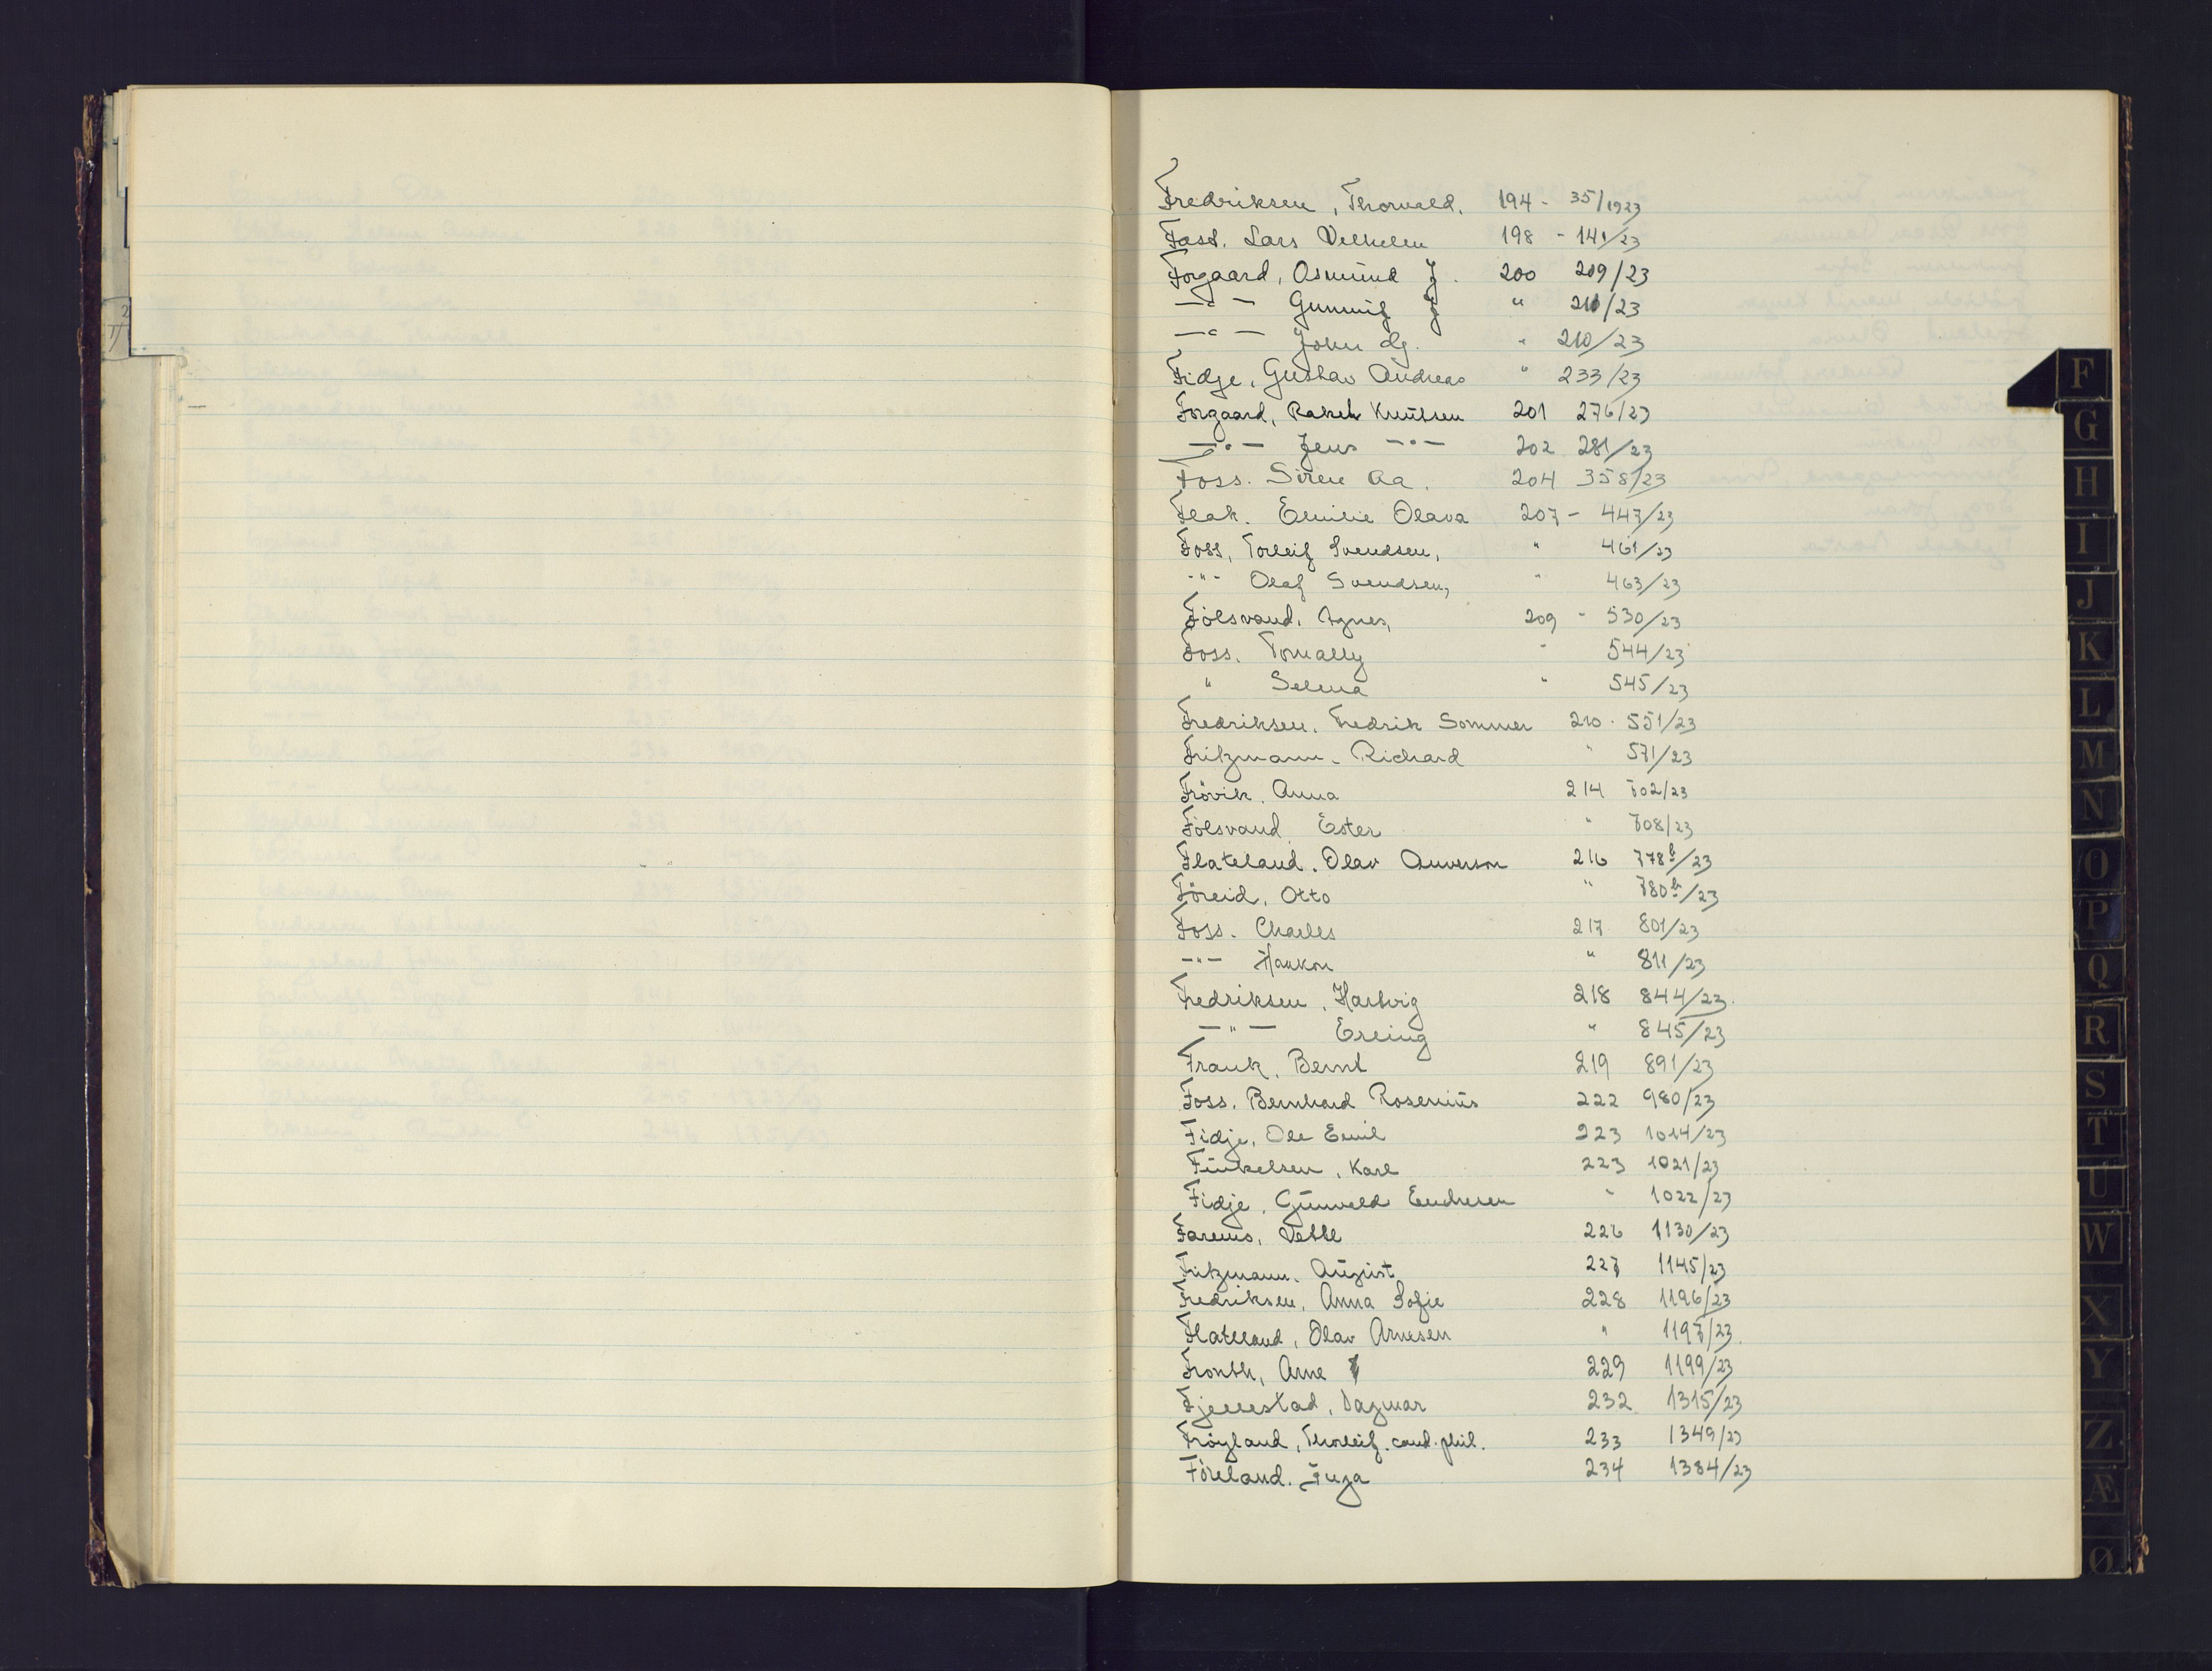 Fredriksen, Thorvald. 194 - 35/1923
Fast. Lars Velhelm 198 - 141/23
Forgaard, Asmund J. 200 209/23
—"— Gunnuf J " 210/23
—"— John dg. " 210/23
Fidje, Gustav Andreas " 233/23
Forgaard, Rakel Knutsen 201 276/23
—"— Jens —"— 202 281/23
Foss. Siren Aa. 204 358/23
Flak. Emilie Olava 207 - 447/23
Foss, Torleif Svendsen, " 461/23
-"- Olaf Svendsen, " 463/23
Fölsvand. Agnes, 209 - 530/23
Foss. Tomally " 544/23
" Selma " 545/23
Fredriksen. Fredrik Sommer 210 - 551/23
Fritzmann. Richard " 571/23
Frövik. Anna 214 702/23
Fölsvand Ester " 708/23
Flateland. Olav Anverson 216 778b/23
Föreid, Otto " 780b/23
Foss. Charles 217 801/23
-"- Haakon " 811/23
Fredriksen, Hartvig 218 844/23.
—"— Erling " 845/23
Frank, Bernt 219 891/23
Foss. Bernhard Rosenius 222 980/23
Fidje, Ole Emil 223 1014/23
Finkelsen, Karl 223 1021/23
Fidje, Gunvald " 1022/23
Farens, Vetle 226 1130/23
Fritzmann. August 227 1145/23
Fredriksen, Anna Sofie 228 1196/23
Flateland, Olav Arnesen " 1197/23.
Fronth, Arne 229 1199/23
Fjellestad, Dagmar 232 1315/23
Fröyland, Thorleif. cand. phil. 233 1349/23
Föreland. Inga 234 1384/23
F
G
H
I
J
K
L
M
N
O
P
Q
R
S
T
U
W
X
Y
Z
Æ
Ø